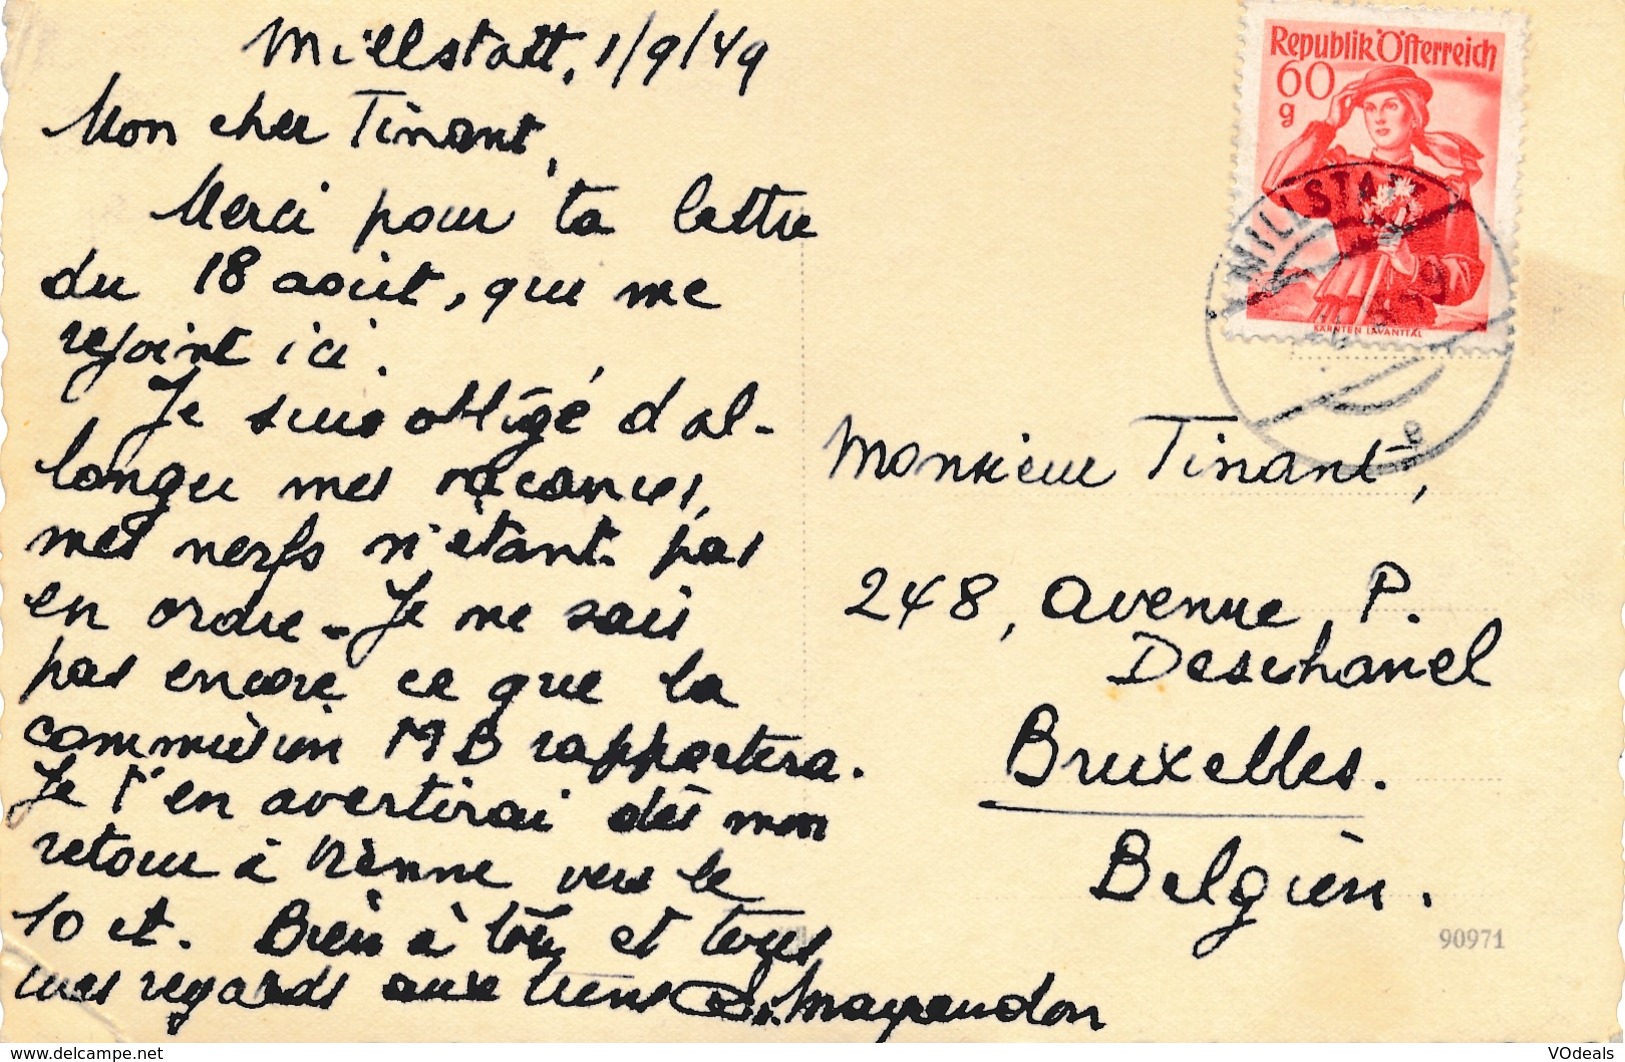 Millstatt, 1/9/49
Mon cher Tinant,
Merci pour ta lettre
du 18 août, qui me
rejoint ici.
Je suis obligé d'al-
longer mes vacances,
mes nerfs n'étant pas
en ordre - Je ne sais
pas encore ce que la
commission MB rapportera.
Je t'en avertirai dès mon
retour à Vienne vers le
10 ct. Bien à toi et tous
mes regards aux tiens
Republik Österreich
60
g
KÄRNTEN LAVANTTAL
MILLSTATT
Monsieur Tinant,
248, avenue P.
Deschanel
Bruxelles.
Belgien.
90971
www.delcampe.net
VOdeals